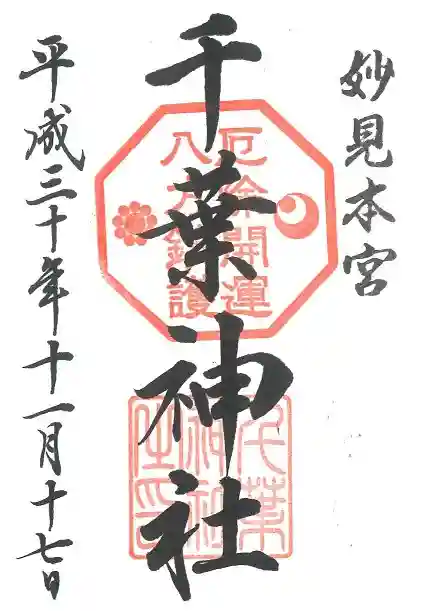 妙見本宮
千葉神社
厄除開運
八方鎮護
千葉
神社
之印
平成三十年十一月十七日